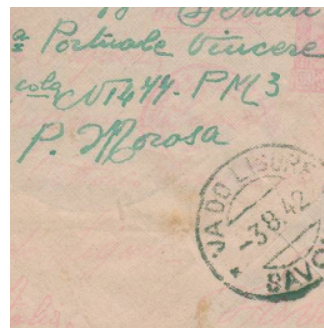 Portuale Vincere
N1444. PM3
P. Morosa
VADO LIGURE
-3.8.42
SAVO